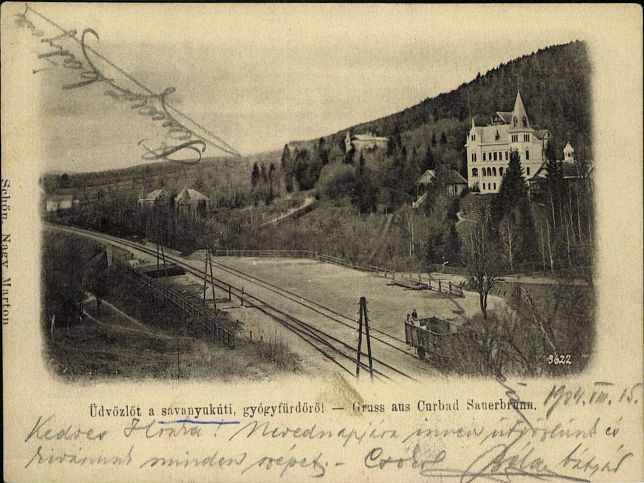 Savanyukút
Schön, Nagy Marton
3622
Üdvözlöt a savanyukúti, gyógyfürdőröl — Gruss aus Curbad Sauerbrunn.
1904. VII. 15.
Kedves Ilonka! Nevednapjára innen üdvözlünk és
kivánunk minden szépet. – Csókol Béla bátyád